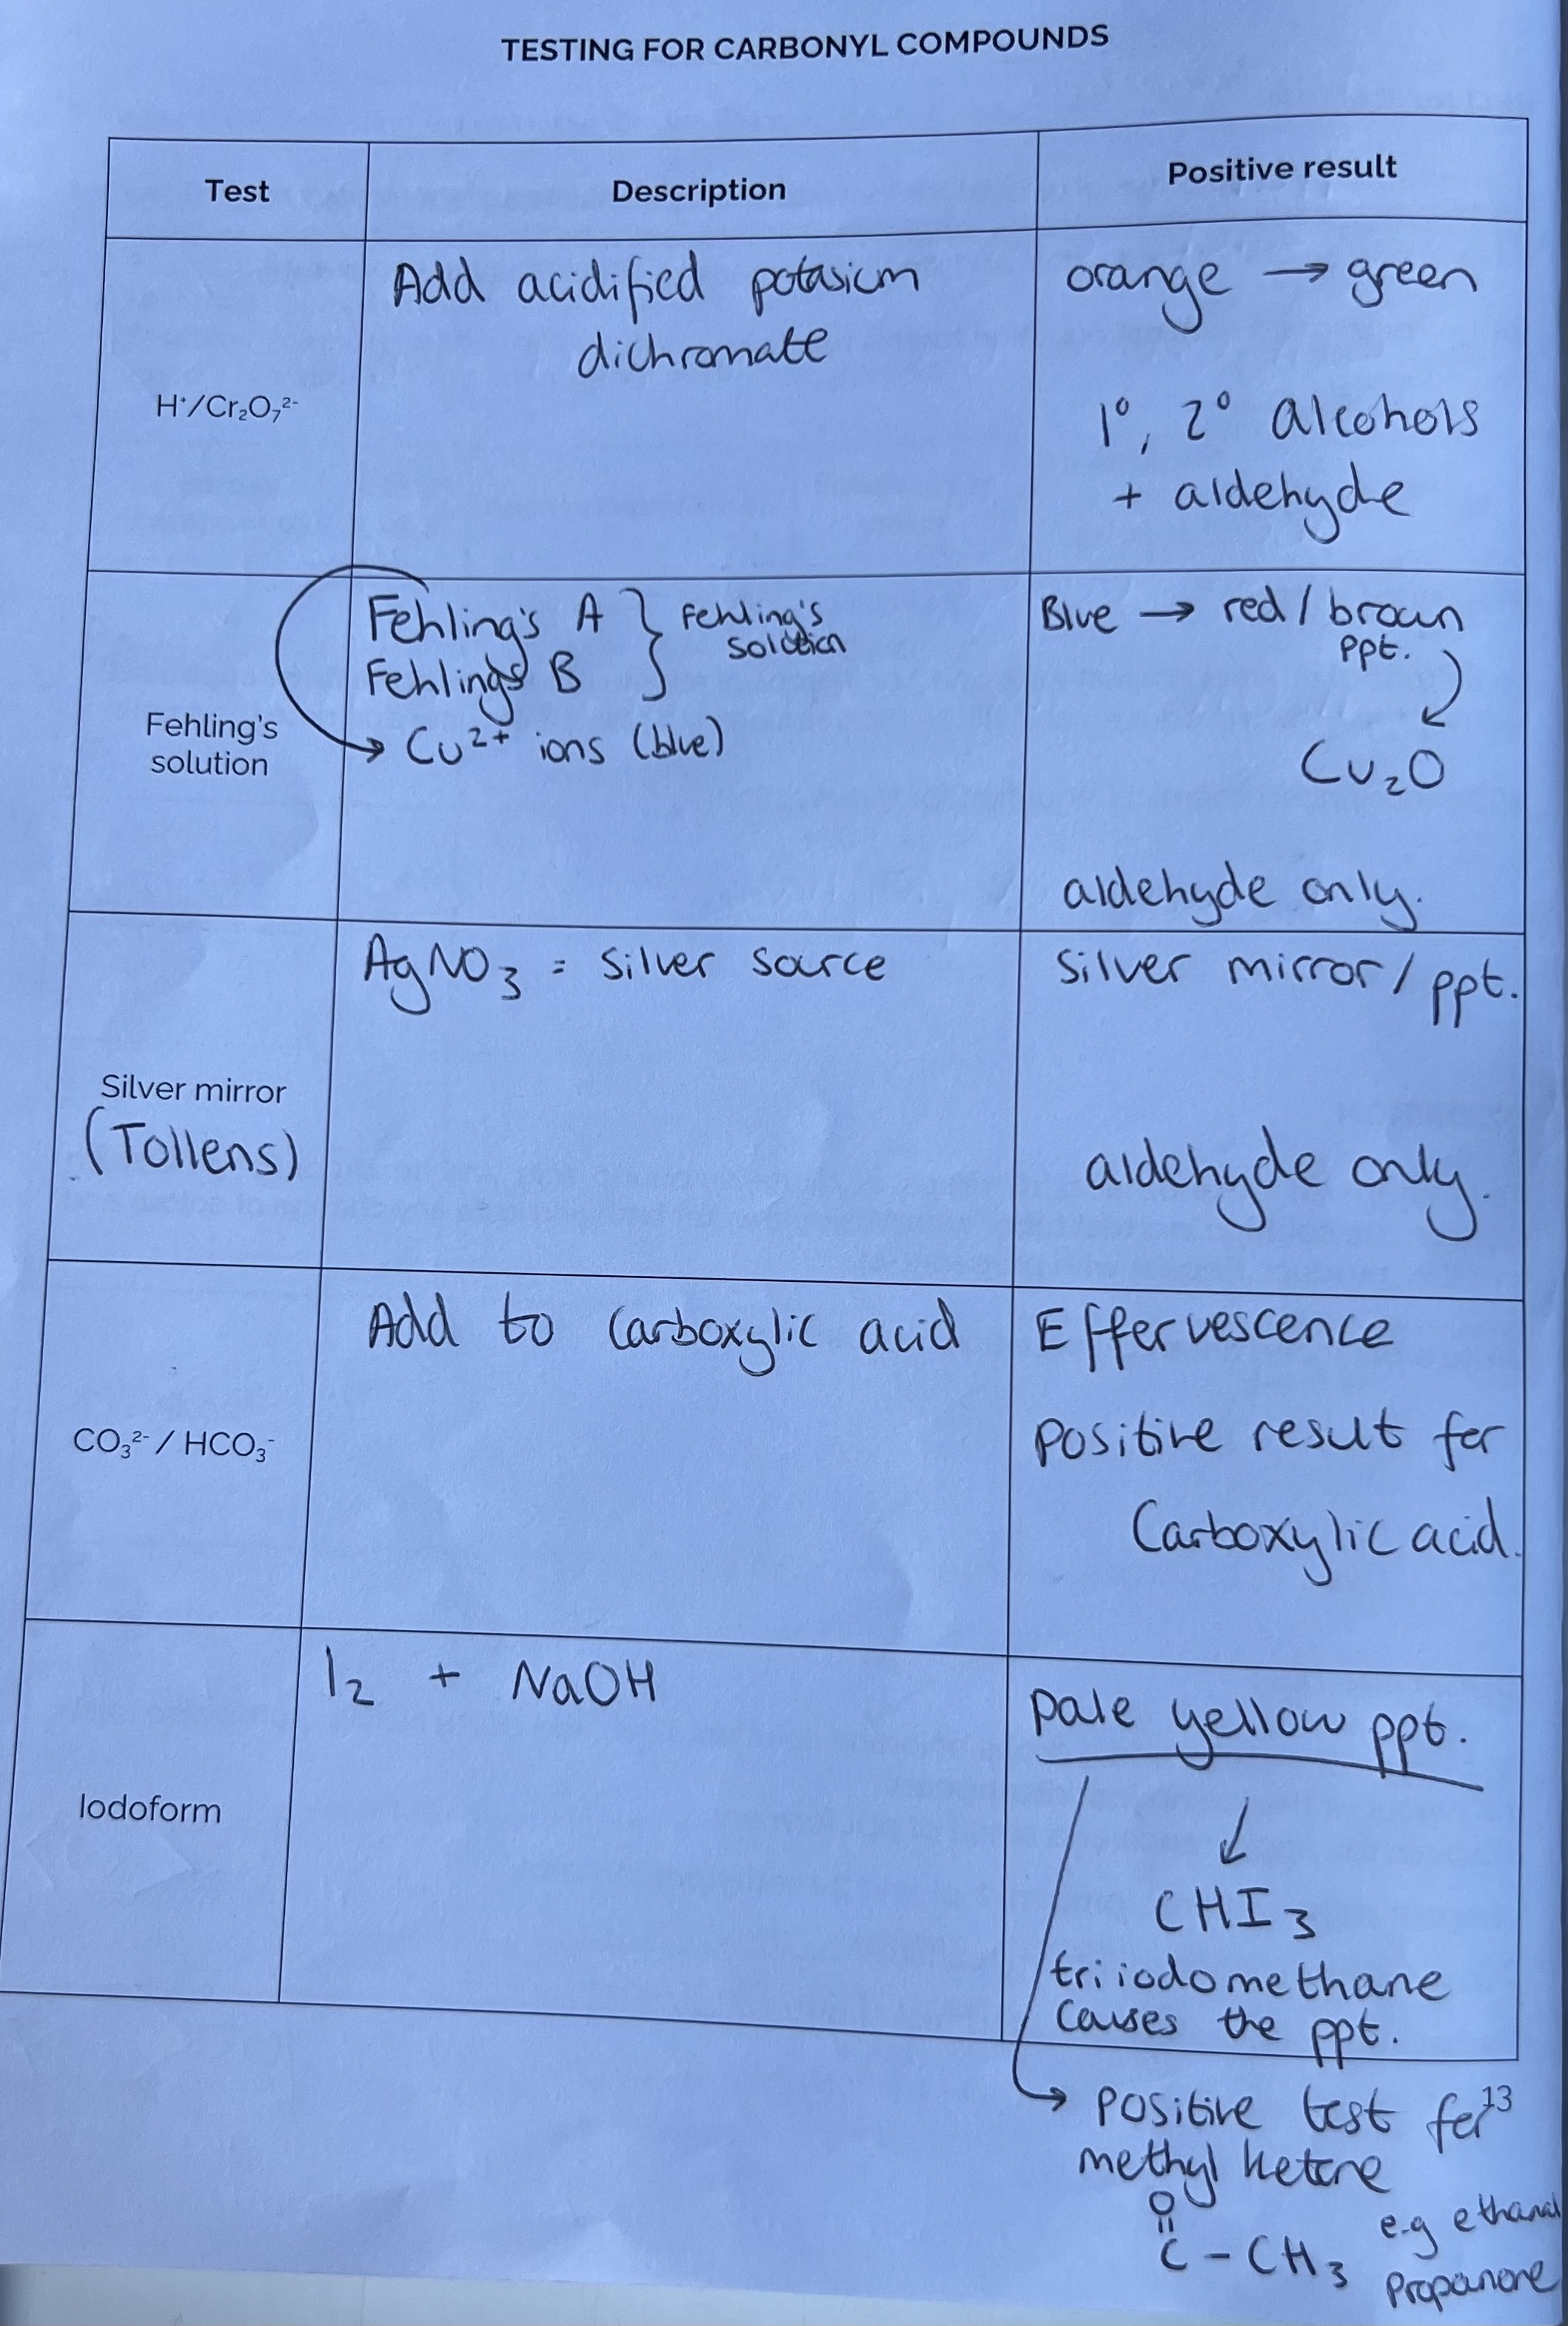 TESTING FOR CARBONYL COMPOUNDS
Test
Description
Positive result
H⁺/Cr₂O₇²⁻
Add acidified potasium
dichromate
orange → green
1°, 2° alcohols
+ aldehyde
Fehling's
solution
Fehling's A } Fehling's
solution
Fehlings B
→ Cu²⁺ ions (blue)
Blue → red / brown
ppt.
Cu₂O
aldehyde only.
Silver mirror
(Tollens)
AgNO₃ = silver source
Silver mirror / ppt.
aldehyde only.
CO₃²⁻ / HCO₃⁻
Add to carboxylic acid
Effervescence
positive result for
Carboxylic acid.
Iodoform
I₂ + NaOH
pale yellow ppt.
↓
CHI₃
triiodomethane
causes the ppt.
→ positive test for
13
methyl ketone
O
||
C - CH₃
e.g ethanal
propanone